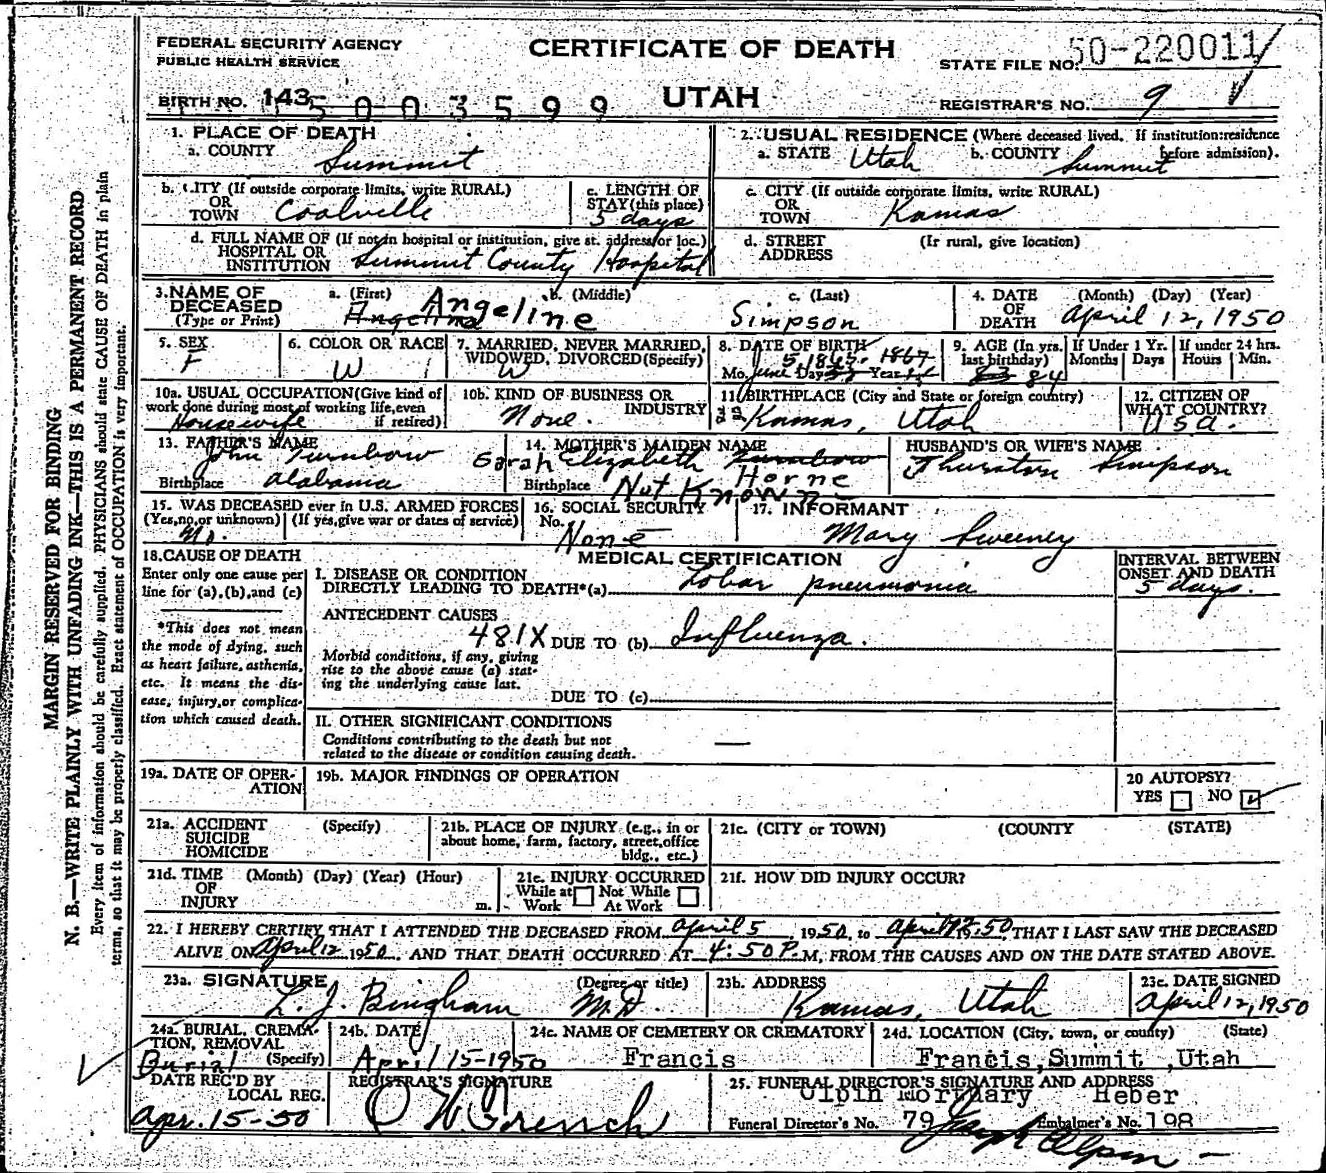 FEDERAL SECURITY AGENCY
PUBLIC HEALTH SERVICE
CERTIFICATE OF DEATH
STATE FILE NO. 50-220011
BIRTH NO. 143 5003599
UTAH
REGISTRAR'S NO. 9
1. PLACE OF DEATH
a. COUNTY Summit
2. USUAL RESIDENCE (Where deceased lived. If institution: residence before admission).
a. STATE Utah b. COUNTY Summit
b. CITY (If outside corporate limits, write RURAL)
OR TOWN Coalville
c. LENGTH OF STAY (this place)
5 days
c. CITY (If outside corporate limits, write RURAL)
OR TOWN Kamas
d. FULL NAME OF (If not in hospital or institution, give st. address or loc.)
HOSPITAL OR INSTITUTION Summit County Hospital
d. STREET ADDRESS (If rural, give location)
3. NAME OF DECEASED (Type or Print)
a. (First) b. (Middle) c. (Last)
Angelina Angeline Simpson
4. DATE OF DEATH (Month) (Day) (Year)
April 12, 1950
5. SEX
F
6. COLOR OR RACE
W
7. MARRIED, NEVER MARRIED, WIDOWED, DIVORCED (Specify)
W
8. DATE OF BIRTH
Mo. June Day Year
5, 1865. 1867
9. AGE (In yrs. last birthday)
83 84
If Under 1 Yr. Months Days
If under 24 hrs. Hours Min.
10a. USUAL OCCUPATION (Give kind of work done during most of working life, even if retired)
Housewife
10b. KIND OF BUSINESS OR INDUSTRY
None.
11. BIRTHPLACE (City and State or foreign country)
Kamas, Utah
12. CITIZEN OF WHAT COUNTRY?
USA.
13. FATHER'S NAME
John Turnbow
Birthplace Alabama
14. MOTHER'S MAIDEN NAME
Sarah Elizabeth Turnbow
Horne
Birthplace Not Known
HUSBAND'S OR WIFE'S NAME
Thurston Simpson
15. WAS DECEASED ever in U.S. ARMED FORCES
(Yes, no, or unknown) (If yes, give war or dates of service)
No.
16. SOCIAL SECURITY No.
None
17. INFORMANT
Mary Sweeney
18. CAUSE OF DEATH
Enter only one cause per line for (a), (b), and (c)
*This does not mean the mode of dying, such as heart failure, asthenia, etc. It means the disease, injury, or complication which caused death.
MEDICAL CERTIFICATION
INTERVAL BETWEEN ONSET AND DEATH
I. DISEASE OR CONDITION DIRECTLY LEADING TO DEATH*(a) Lobar pneumonia
5 days.
ANTECEDENT CAUSES
481X DUE TO (b) Influenza.
Morbid conditions, if any, giving rise to the above cause (a) stating the underlying cause last.
DUE TO (c)
II. OTHER SIGNIFICANT CONDITIONS
Conditions contributing to the death but not related to the disease or condition causing death.
19a. DATE OF OPERATION
19b. MAJOR FINDINGS OF OPERATION
20 AUTOPSY?
YES NO
21a. ACCIDENT SUICIDE HOMICIDE (Specify)
21b. PLACE OF INJURY (e.g., in or about home, farm, factory, street, office bldg., etc.)
21c. (CITY or TOWN) (COUNTY) (STATE)
21d. TIME OF INJURY (Month) (Day) (Year) (Hour) m.
21e. INJURY OCCURRED
While at Work Not While At Work
21f. HOW DID INJURY OCCUR?
22. I HEREBY CERTIFY THAT I ATTENDED THE DECEASED FROM April 5, 1950, to April 12 1950, THAT I LAST SAW THE DECEASED
ALIVE ON April 12 1950. AND THAT DEATH OCCURRED AT 4:50 P.M, FROM THE CAUSES AND ON THE DATE STATED ABOVE.
23a. SIGNATURE (Degree or title)
L. J. Bingham M.D.
23b. ADDRESS
Kamas, Utah
23c. DATE SIGNED
April 12, 1950
24a. BURIAL, CREMATION, REMOVAL (Specify)
Burial
24b. DATE
April 15-1950
24c. NAME OF CEMETERY OR CREMATORY
Francis
24d. LOCATION (City, town, or county) (State)
Francis, Summit, Utah
DATE REC'D BY LOCAL REG.
Apr. 15-50
REGISTRAR'S SIGNATURE
O W French
25. FUNERAL DIRECTOR'S SIGNATURE AND ADDRESS
Olpin Mortuary Heber
Funeral Director's No. 79 Embalmer's No. 198
Joseph Olpin
MARGIN RESERVED FOR BINDING
N. B.—WRITE PLAINLY WITH UNFADING INK—THIS IS A PERMANENT RECORD
Every item of information should be carefully supplied. PHYSICIANS should state CAUSE OF DEATH in plain
terms, so that it may be properly classified. Exact statement of OCCUPATION is very important.